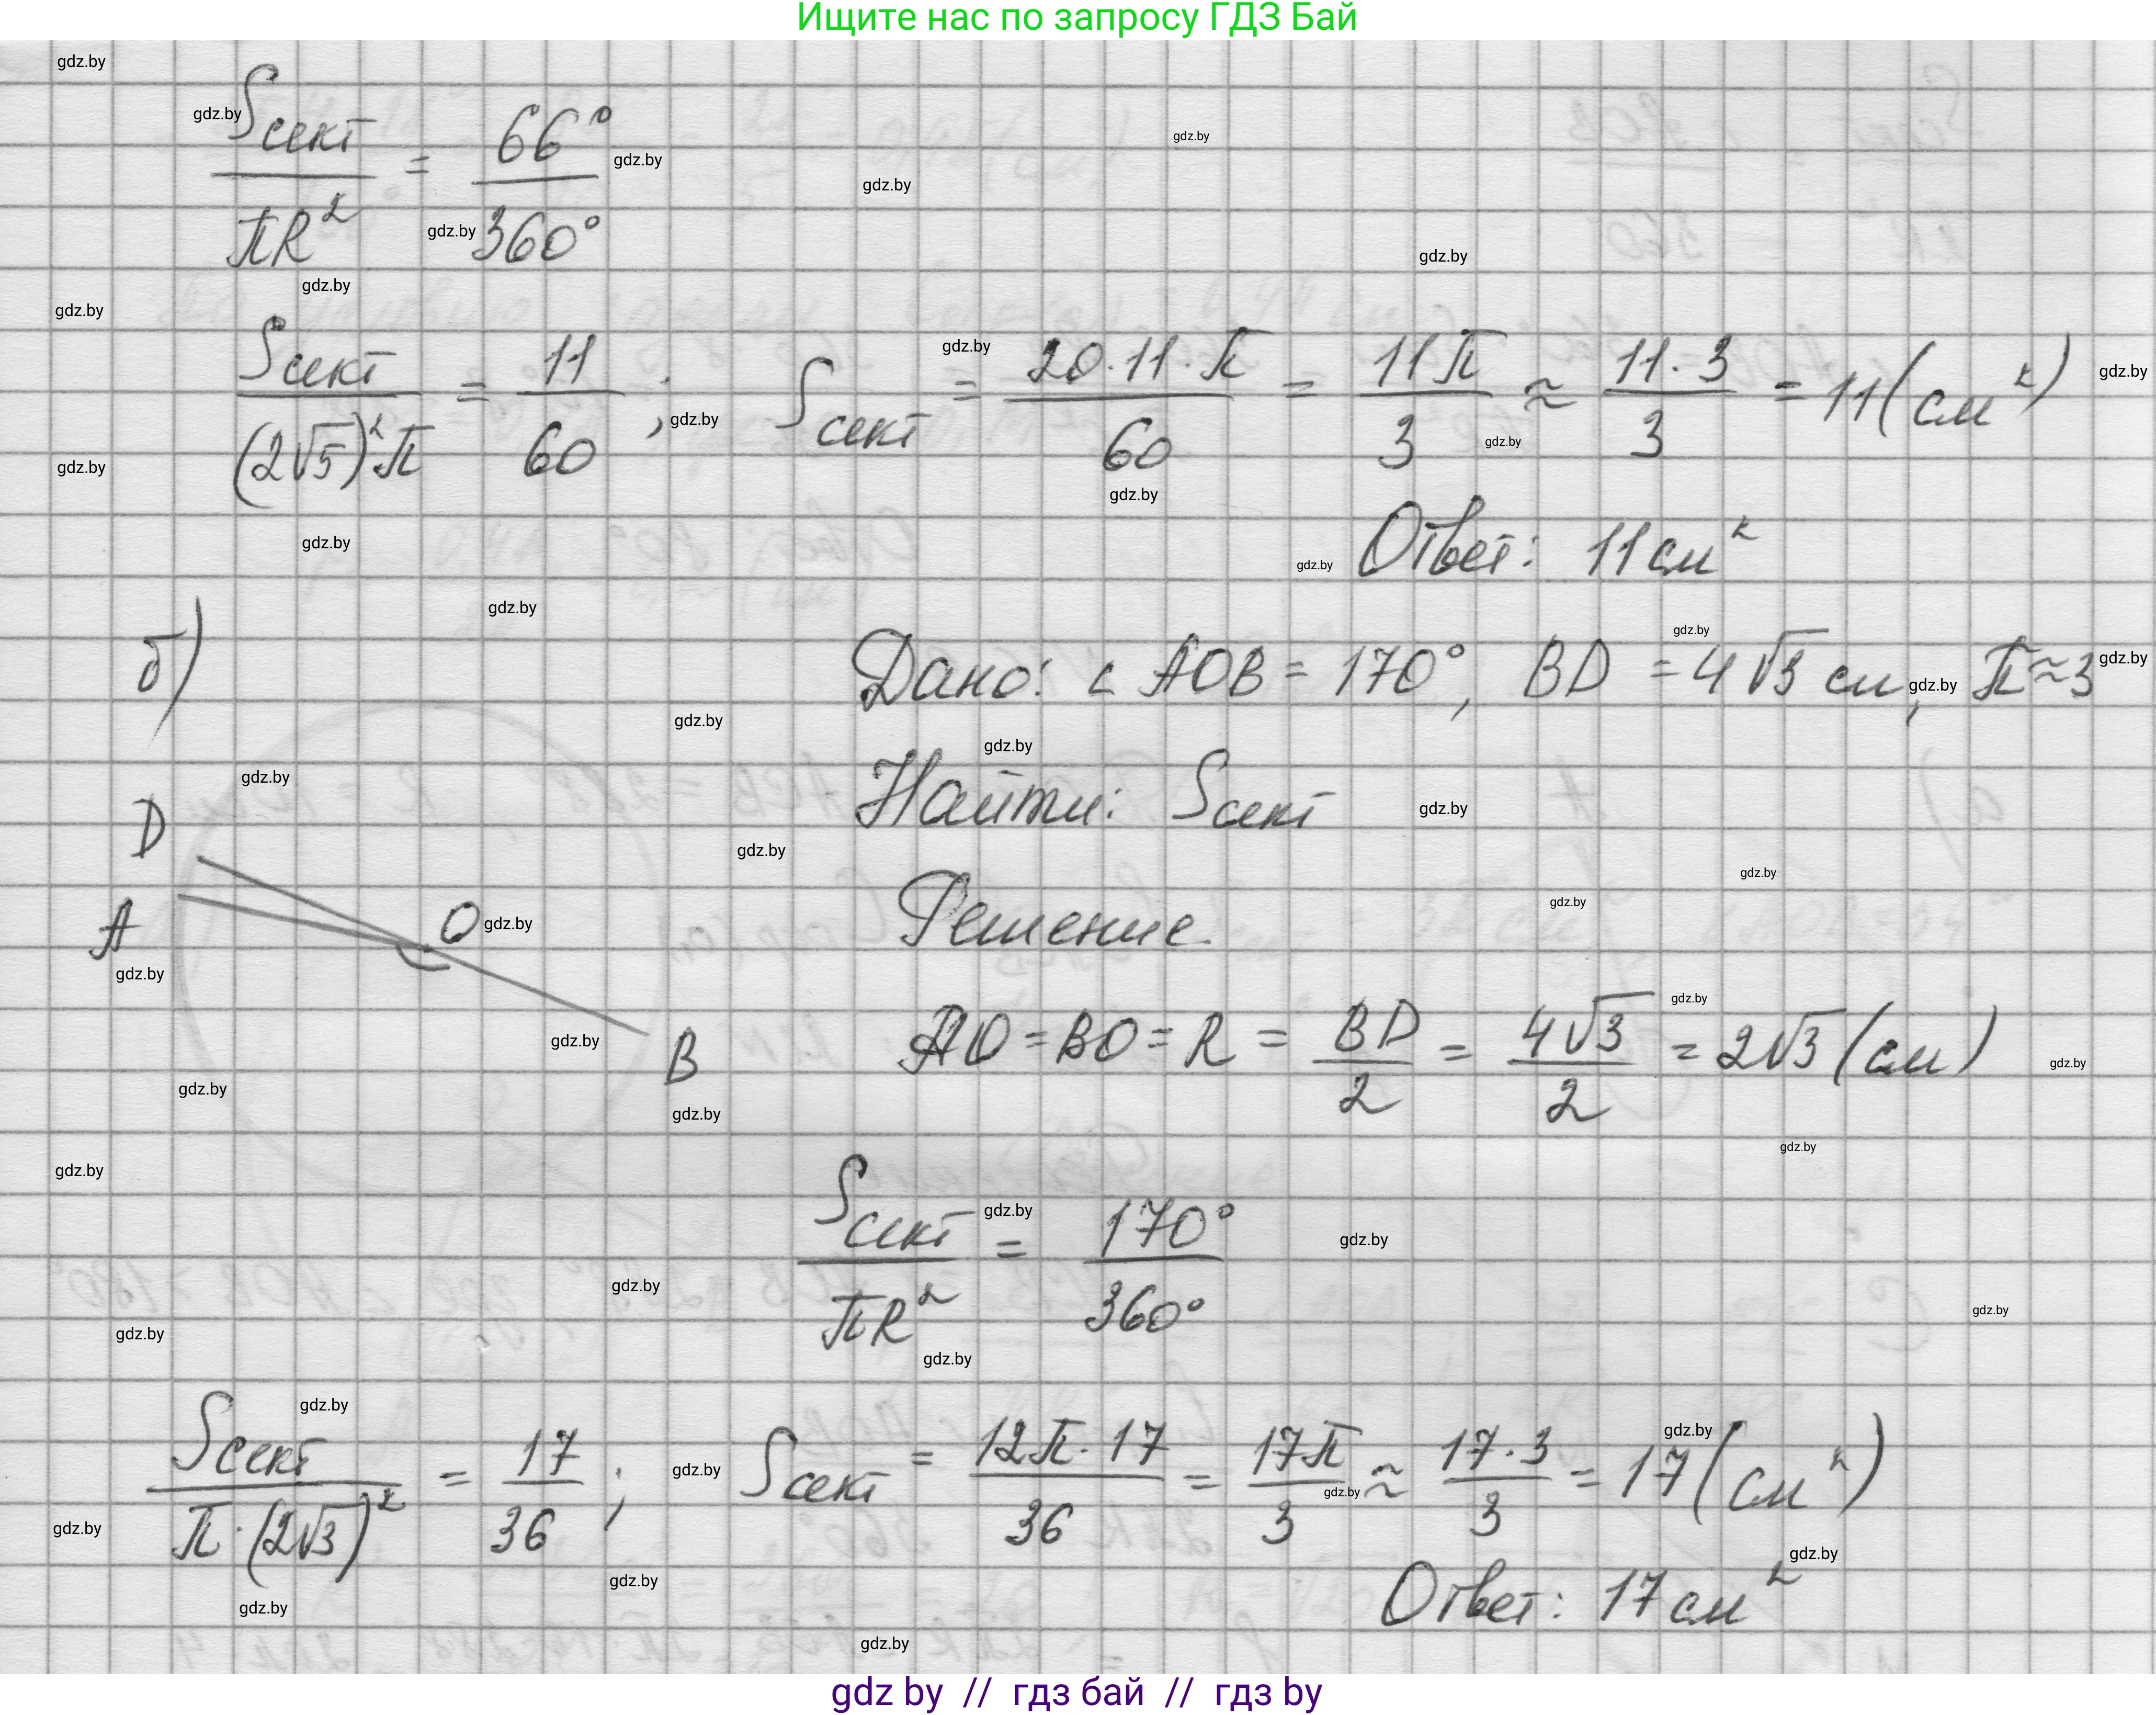 Ищите нас по запросу ГДЗ Бай
Sсект / πR² = 66° / 360°
Sсект / (2√5)²π = 11 / 60 ; Sсект = 20·11·π / 60 = 11π / 3 ≈ 11·3 / 3 = 11 (см²)
Ответ: 11 см²
б)
Дано: ∠AOB = 170°, BD = 4√3 см, π≈3
Найти: Sсект
D
A
O
B
Решение.
AO = BO = R = BD / 2 = 4√3 / 2 = 2√3 (см)
Sсект / πR² = 170° / 360°
Sсект / π·(2√3)² = 17 / 36 ; Sсект = 12π·17 / 36 = 17π / 3 ≈ 17·3 / 3 = 17 (см²)
Ответ: 17 см²
gdz.by
gdz by // гдз бай // гдз by